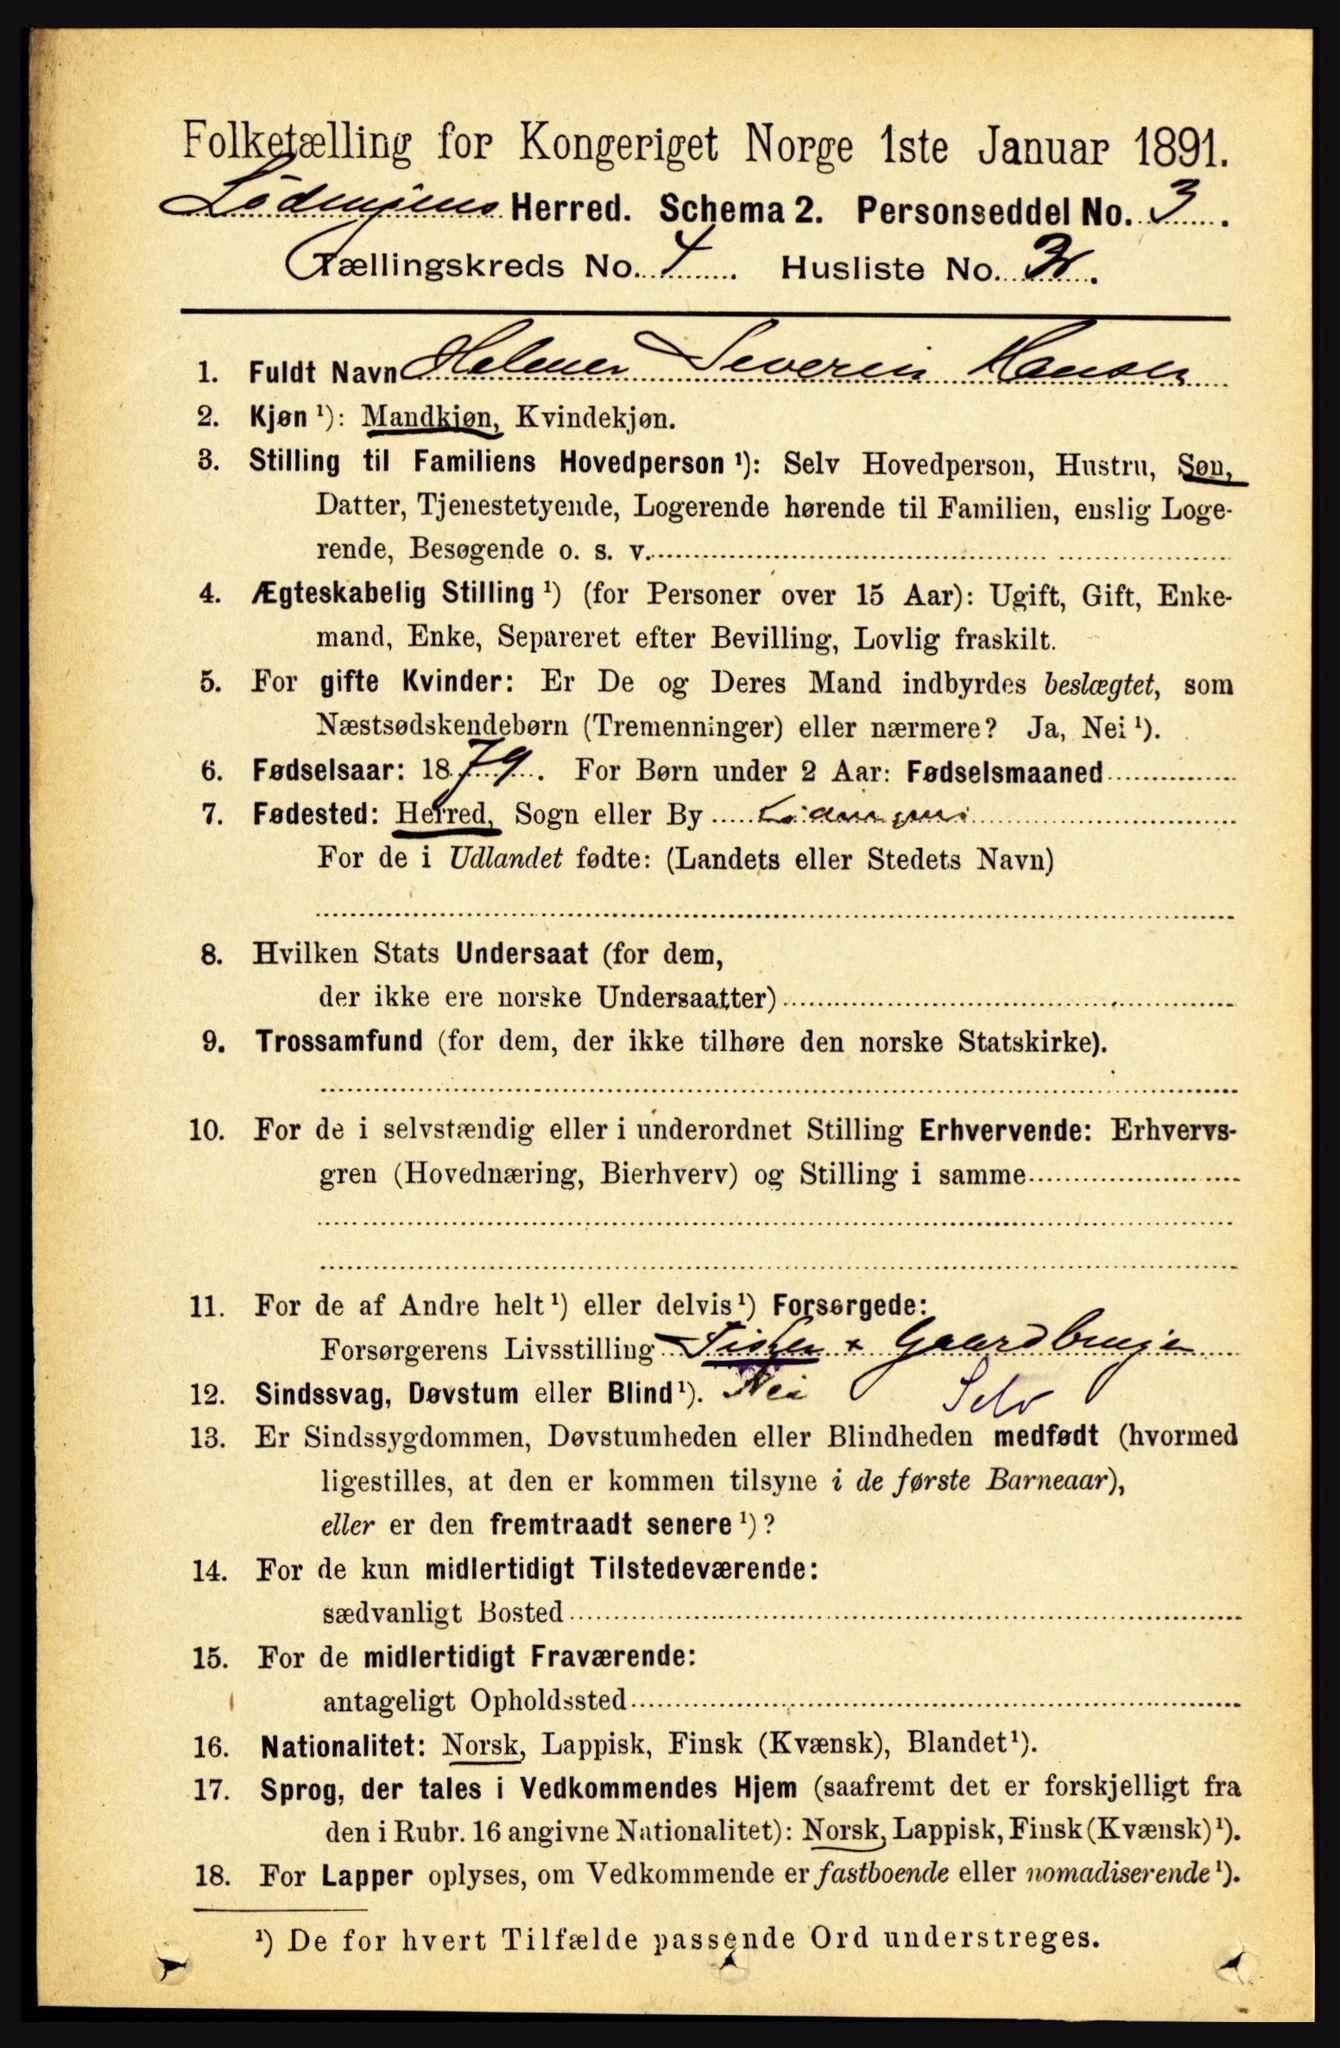 Folketælling for Kongeriget Norge 1ste Januar 1891.
Lødingens Herred. Schema 2. Personseddel No. 3.
Tællingskreds No. 4. Husliste No.
1. Fuldt Navn Helmer Severin Hansen
2. Kjøn ¹): Mandkjøn, Kvindekjøn.
3. Stilling til Familiens Hovedperson ¹): Selv Hovedperson, Hustru, Søn,
Datter, Tjenestetyende, Logerende hørende til Familien, enslig Loge-
rende, Besøgende o. s. v.
4. Ægteskabelig Stilling ¹) (for Personer over 15 Aar): Ugift, Gift, Enke-
mand, Enke, Separeret efter Bevilling, Lovlig fraskilt.
5. For gifte Kvinder: Er De og Deres Mand indbyrdes beslægtet, som
Næstsødskendebørn (Tremenninger) eller nærmere? Ja, Nei ¹).
6. Fødselsaar: 1879. For Børn under 2 Aar: Fødselsmaaned
7. Fødested: Herred, Sogn eller By Lødingen
For de i Udlandet fødte: (Landets eller Stedets Navn)
8. Hvilken Stats Undersaat (for dem,
der ikke ere norske Undersaatter)
9. Trossamfund (for dem, der ikke tilhøre den norske Statskirke).
10. For de i selvstændig eller i underordnet Stilling Erhvervende: Erhvervs-
gren (Hovednæring, Bierhverv) og Stilling i samme
11. For de af Andre helt ¹) eller delvis ¹) Forsørgede:
Forsørgerens Livsstilling Fisker + Gaardbruger
12. Sindssvag, Døvstum eller Blind ¹). Nei Selv
13. Er Sindssygdommen, Døvstumheden eller Blindheden medfødt (hvormed
ligestilles, at den er kommen tilsyne i de første Barneaar),
eller er den fremtraadt senere ¹)?
14. For de kun midlertidigt Tilstedeværende:
sædvanligt Bosted
15. For de midlertidigt Fraværende:
antageligt Opholdssted
16. Nationalitet: Norsk, Lappisk, Finsk (Kvænsk), Blandet ¹).
17. Sprog, der tales i Vedkommendes Hjem (saafremt det er forskjelligt fra
den i Rubr. 16 angivne Nationalitet): Norsk, Lappisk, Finsk (Kvænsk) ¹).
18. For Lapper oplyses, om Vedkommende er fastboende eller nomadiserende ¹).
¹) De for hvert Tilfælde passende Ord understreges.